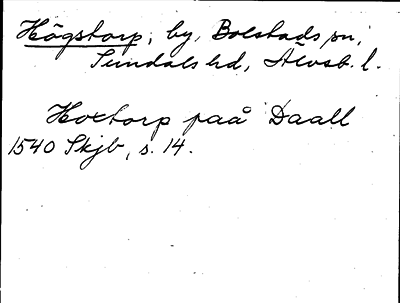 Högstorp, by, Bolstads sn,
Sundals hd, Älvsb. l.
Hoxtorp paå Daall
1540 Skjb, s. 14.